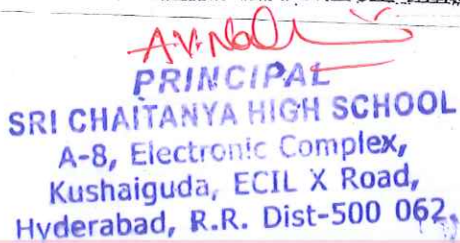 PRINCIPAL
SRI CHAITANYA HIGH SCHOOL
A-8, Electronic Complex,
Kushaiguda, ECIL X Road,
Hyderabad, R.R. Dist-500 062.